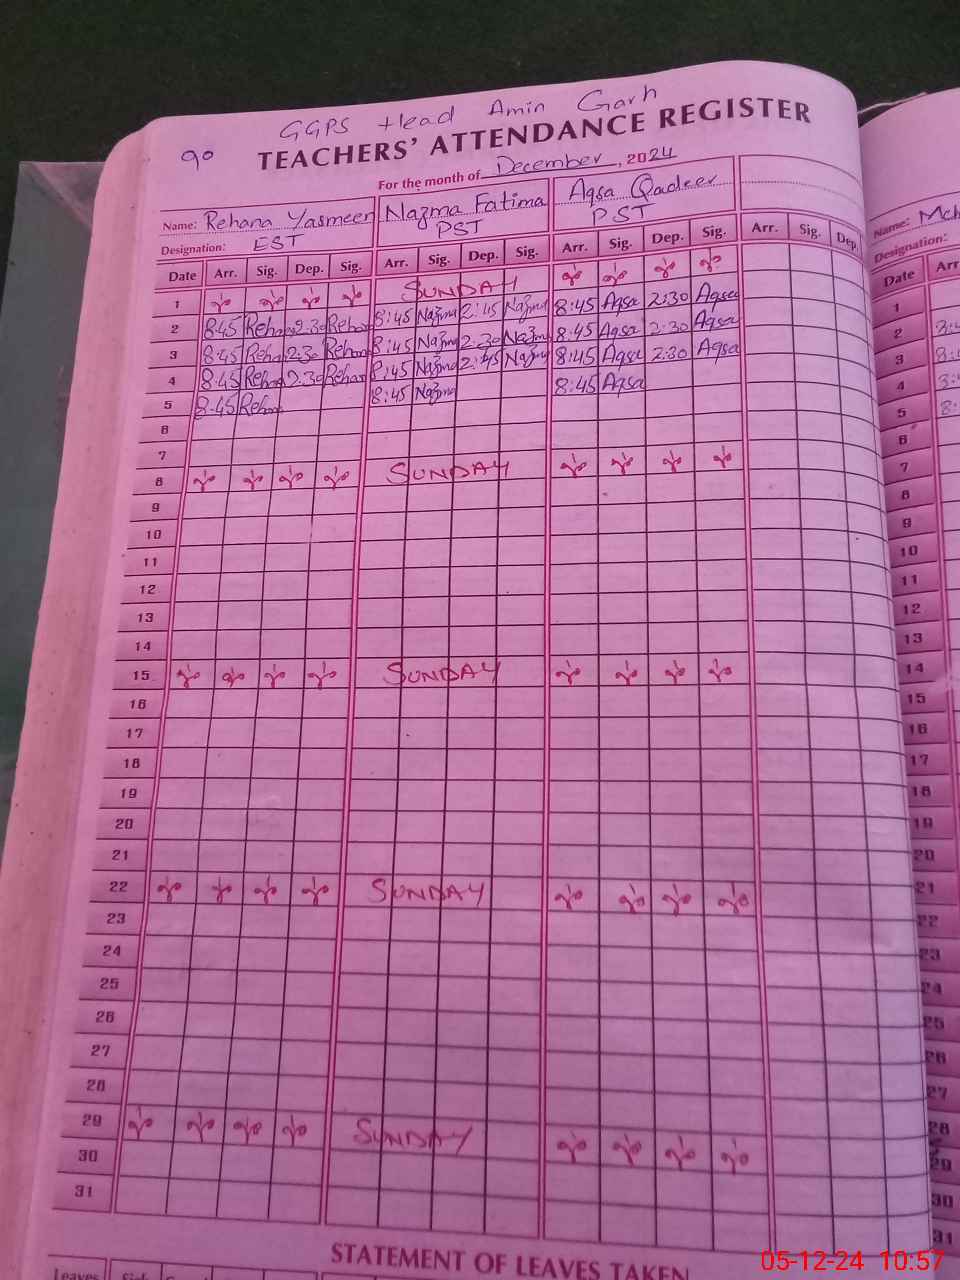 GGPS Head Amin Garh
90
TEACHERS' ATTENDANCE REGISTER
For the month of December, 2024
Name: Rehana Yasmeen Nazma Fatima Aqsa Qadeer
Designation: EST PST PST
Date Arr. Sig. Dep. Sig. Arr. Sig. Dep. Sig. Arr. Sig. Dep. Sig. Arr. Sig. Dep.
1 SUNDAY
2 8:45 Rehana 2:30 Rehana 8:45 Nazma 2:45 Nazma 8:45 Aqsa 2:30 Aqsa
3 8:45 Rehana 2:30 Rehana 8:45 Nazma 2:30 Nazma 8:45 Aqsa 2:30 Aqsa
4 8:45 Rehana 2:30 Rehana 8:45 Nazma 2:45 Nazma 8:45 Aqsa 2:30 Aqsa
5 8:45 Rehana 8:45 Nazma 8:45 Aqsa
6
7
8 SUNDAY
9
10
11
12
13
14
15 SUNDAY
16
17
18
19
20
21
22 SUNDAY
23
24
25
26
27
28
29 SUNDAY
30
31
STATEMENT OF LEAVES TAKEN
Leaves Sick
Name:
Designation:
Date Arr
1
2
3
4
5
6
7
8
9
10
11
12
13
14
15
16
17
18
19
20
21
22
23
24
25
26
27
28
29
30
31
05-12-24 10:57